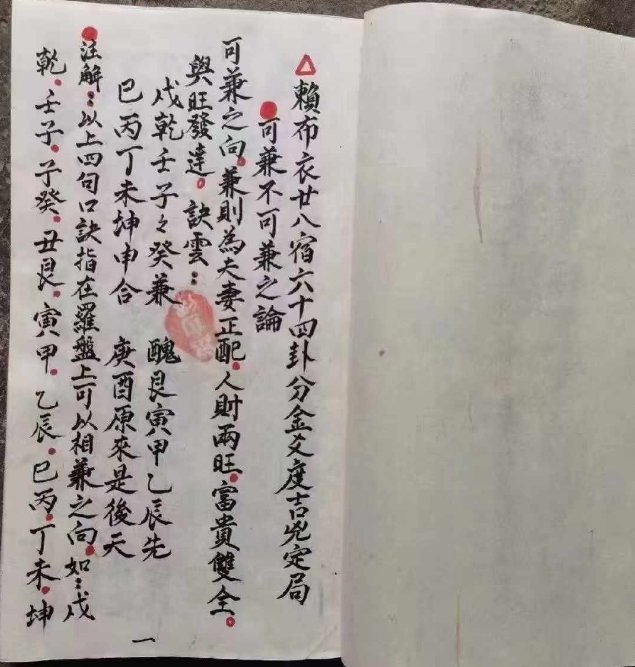 賴布衣廿八宿六十四卦分金爻度吉兇定局
可兼不可兼之論
可兼之向。兼則為夫妻正配。人財兩旺。富貴雙全。
與旺發達。訣雲:
戌乾壬子々癸兼 醜艮寅甲乙辰先
巳丙丁未坤申合 庚酉原來是後天
注解:以上四句口訣指在羅盤上可以相兼之向。如:戌
乾。壬子。子癸。丑艮。寅甲。乙辰。巳丙。丁未。坤
一